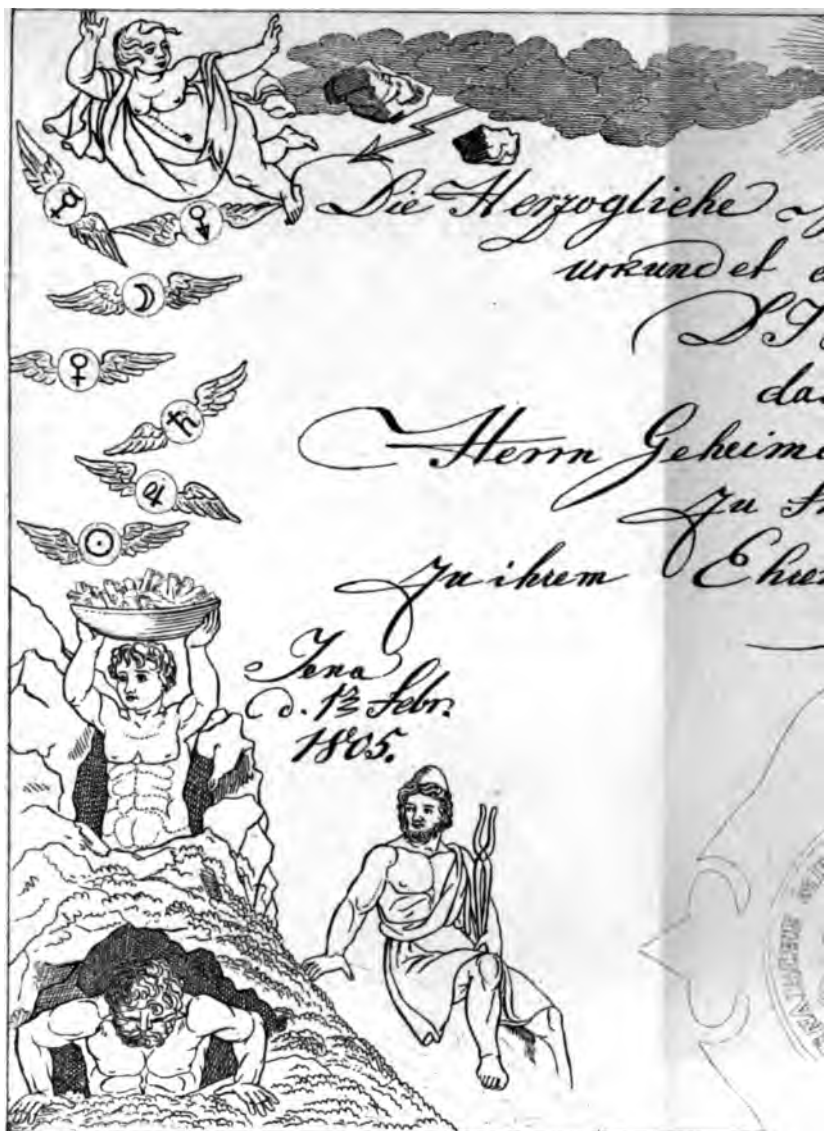 Die Herzogliche
urkundet
Herrn Geheime
zu
zu ihrem Ehren
Jena
d. 13 Febr.
1805.